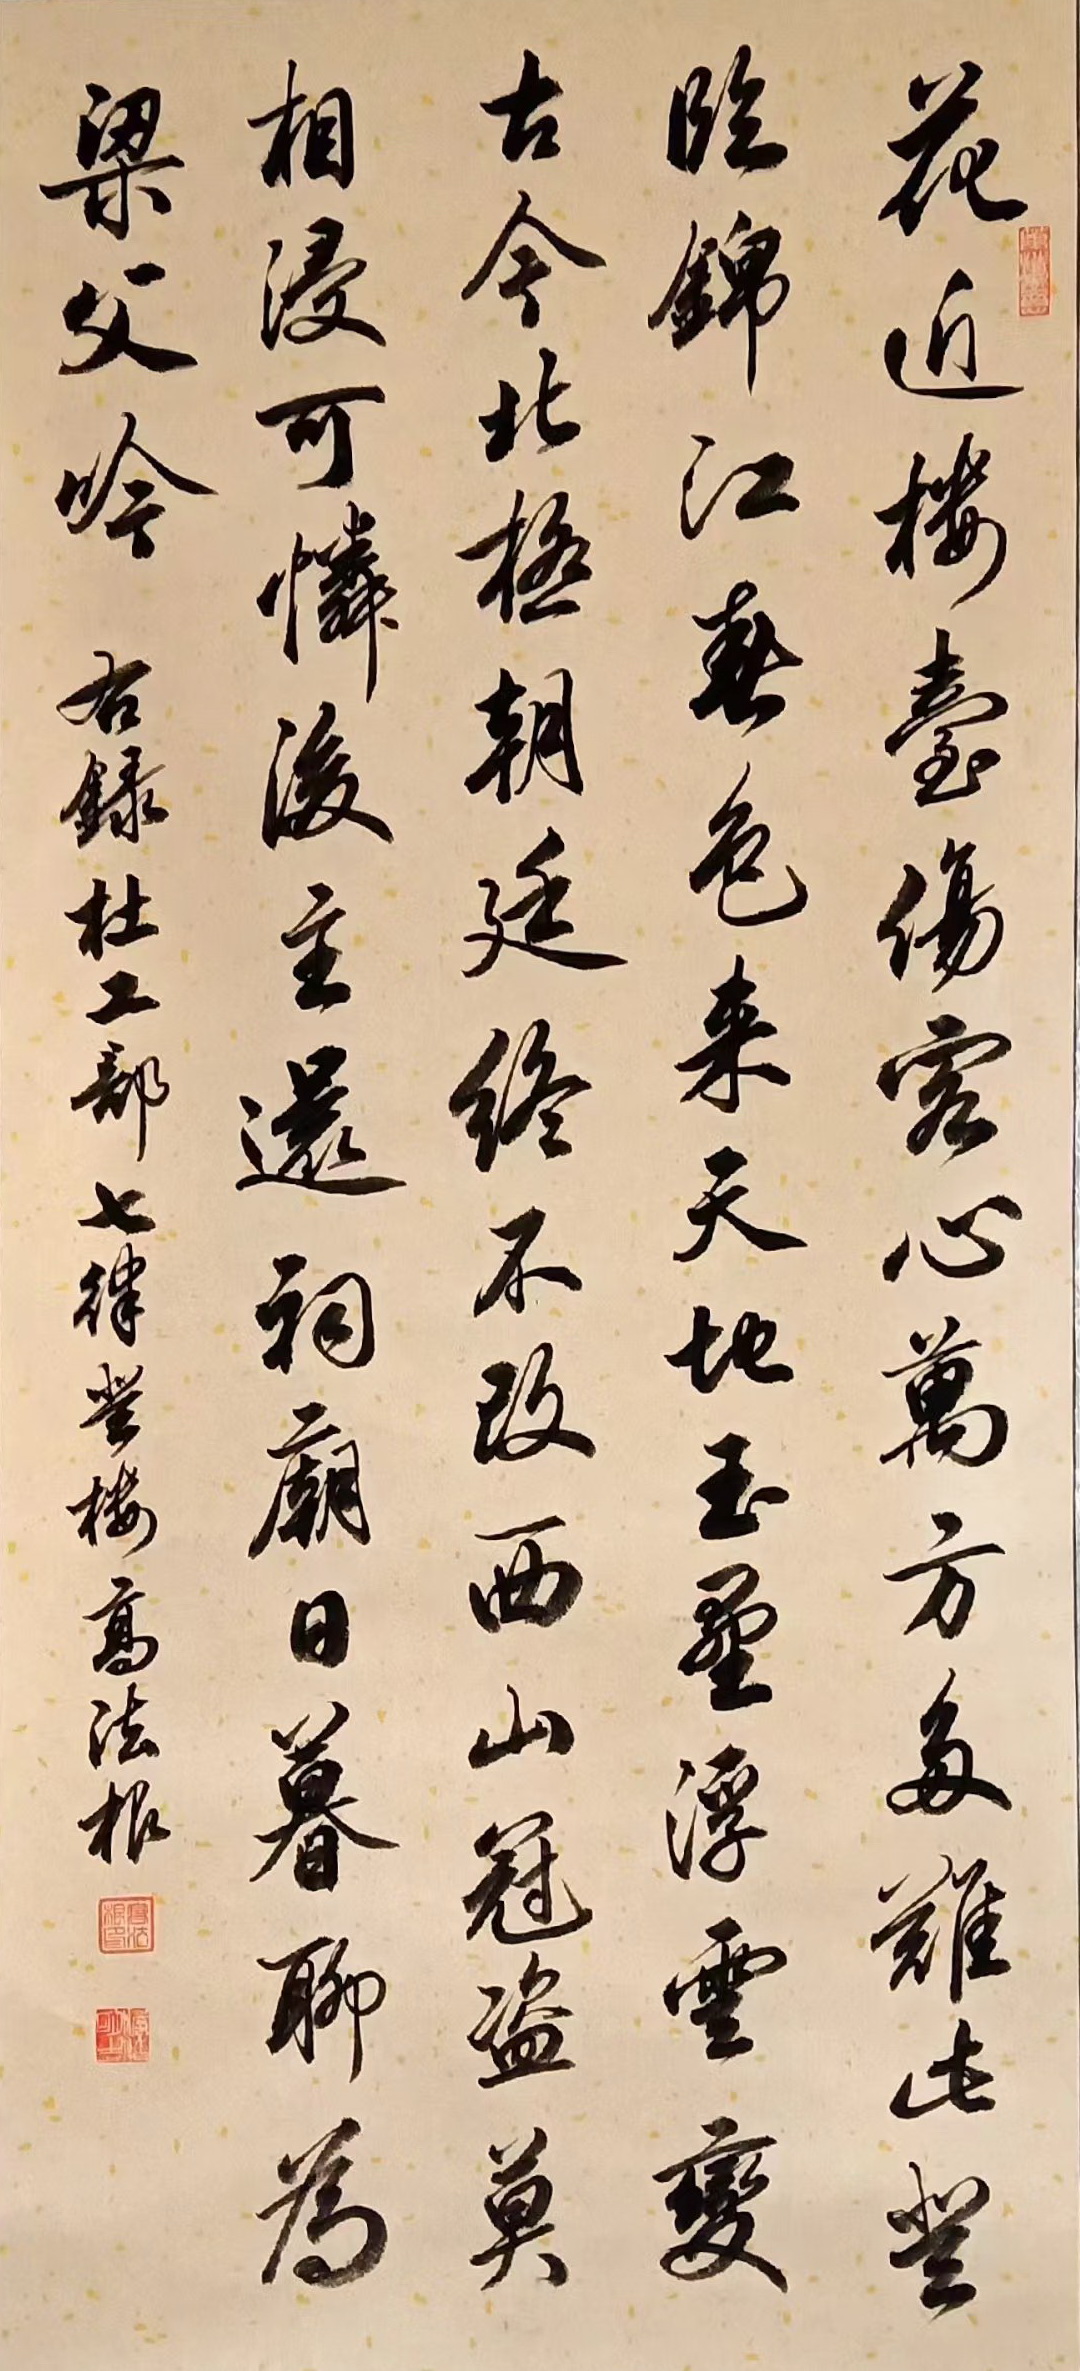 花近楼臺傷客心萬方多難此登
臨錦江春色来天地玉壘浮雲變
古今北極朝廷終不改西山冠盗莫
相侵可憐後主還祠廟日暮聊為
梁父吟 右録杜工部七律登楼 高法根
高法根印